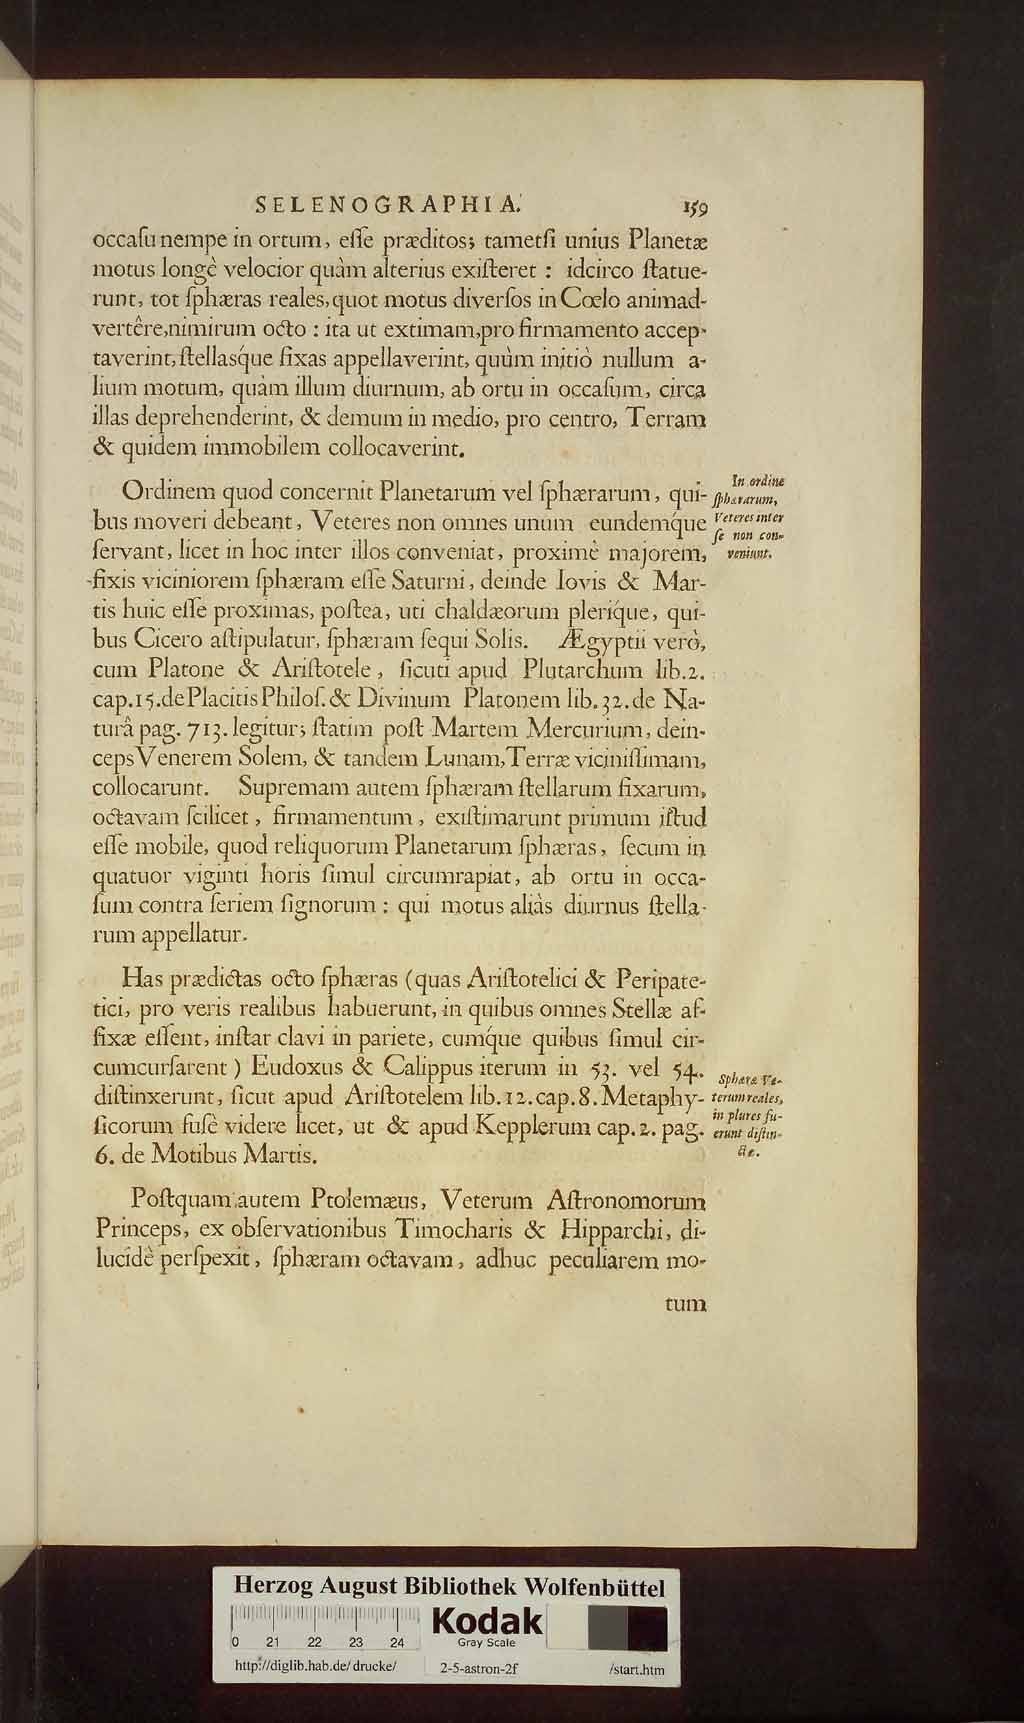 SELENOGRAPHIA. 159
occaſu nempe in ortum, eſſe præditos; tametſi unius Planetæ
motus longè velocior quàm alterius exiſteret : idcirco ſtatue-
runt, tot ſphæras reales, quot motus diverſos in Cœlo animad-
vertêre, nimirum octo : ita ut extimam, pro firmamento accep-
taverint, ſtellasq́ue fixas appellaverint, quùm initiò nullum a-
lium motum, quàm illum diurnum, ab ortu in occaſum, circa
illas deprehenderint, & demum in medio, pro centro, Terram
& quidem immobilem collocaverint.
Ordinem quod concernit Planetarum vel ſphærarum, qui-
bus moveri debeant, Veteres non omnes unum eundemq́ue
ſervant, licet in hoc inter illos conveniat, proximè majorem,
fixis viciniorem ſphæram eſſe Saturni, deinde Iovis & Mar-
tis huic eſſe proximas, poſtea, uti chaldæorum pleriq́ue, qui-
bus Cicero aſtipulatur, ſphæram ſequi Solis. Ægyptii verò,
cum Platone & Ariſtotele, ſicuti apud Plutarchum lib.2.
cap.15.de Placitis Philoſ. & Divinum Platonem lib.32.de Na-
turâ pag. 713. legitur; ſtatim poſt Martem Mercurium, dein-
ceps Venerem Solem, & tandem Lunam, Terræ viciniſſimam,
collocarunt. Supremam autem ſphæram ſtellarum fixarum,
octavam ſcilicet, firmamentum, exiſtimarunt primum iſtud
eſſe mobile, quod reliquorum Planetarum ſphæras, ſecum in
quatuor viginti horis ſimul circumrapiat, ab ortu in occa-
ſum contra ſeriem ſignorum : qui motus aliàs diurnus ſtella-
rum appellatur.
In ordine
ſphærarum,
Veteres inter
ſe non con-
veniunt.
Has prædictas octo ſphæras (quas Ariſtotelici & Peripate-
tici, pro veris realibus habuerunt, in quibus omnes Stellæ af-
fixæ eſſent, inſtar clavi in pariete, cumq́ue quibus ſimul cir-
cumcurſarent) Eudoxus & Calippus iterum in 53. vel 54.
diſtinxerunt, ſicut apud Ariſtotelem lib.12.cap.8.Metaphy-
ſicorum fuſè videre licet, ut & apud Kepplerum cap.2. pag.
6. de Motibus Martis.
Sphæræ Ve-
terum reales,
in plures fu-
erunt diſtin-
ctæ.
Poſtquam autem Ptolemæus, Veterum Aſtronomorum
Princeps, ex obſervationibus Timocharis & Hipparchi, di-
lucidè perſpexit, ſphæram octavam, adhuc peculiarem mo-
tum
Herzog August Bibliothek Wolfenbüttel
0 21 22 23 24
Kodak
Gray Scale
http://diglib.hab.de/drucke/ 2-5-astron-2f /start.htm